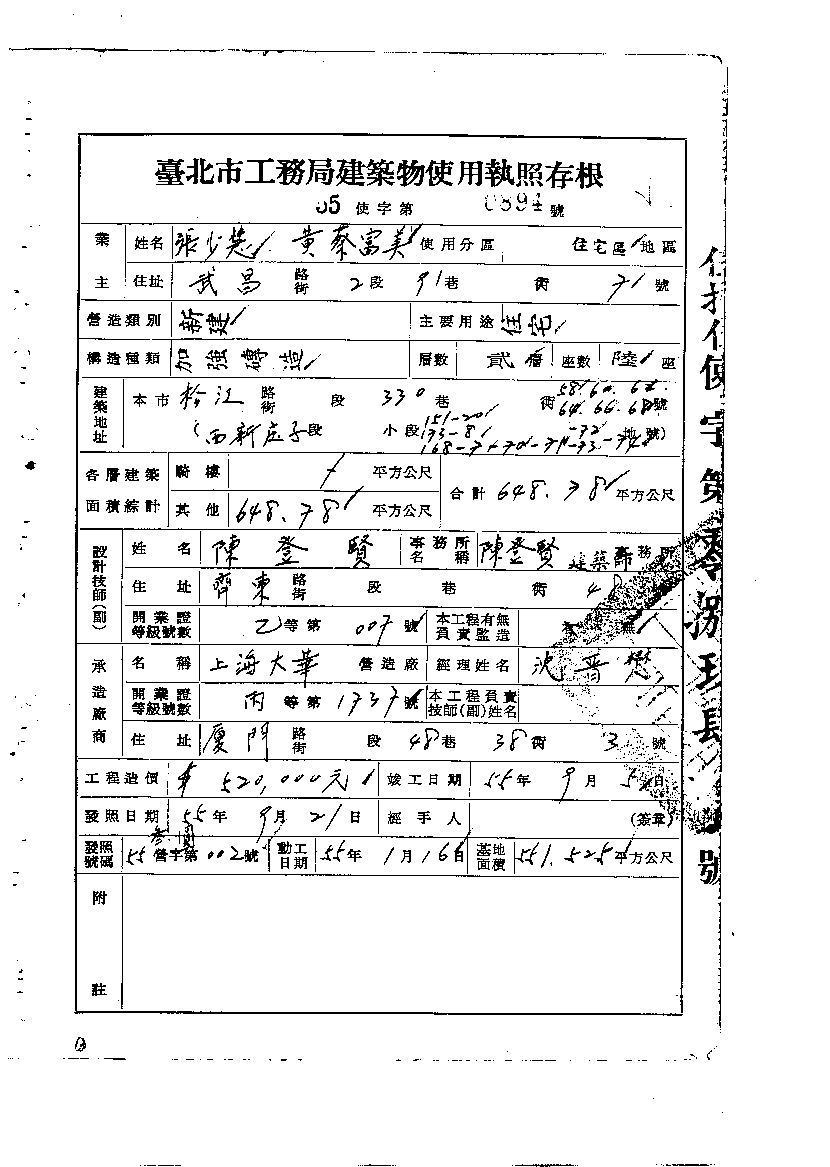 臺北市工務局建築物使用執照存根
05 使字第 0894 號
業主 姓名 黃蔡富美 使用分區 住宅區 地區
住址 武昌 路街 2段 91巷 衖 71號
營造類別 新建 主要用途 住宅
構造種類 加強磚造 層數 貳層 座數 陸座
建築地址 本市 松江 路街 段 330巷 衖 58.60.62.
64.66.68號
(西新庄子段 小段 151-20 173-81 地號)
各層建築面積綜計 騎樓 平方公尺 合計 648.78 平方公尺
其他 648.78 平方公尺
設計技師(副) 姓名 陳登賢 事務所名稱 陳登賢 建築師事務所
住址 齊東 路街 段 巷 衖 48
開業證等級號數 乙等第 007號 本工程有無負責監造 無
承造廠商 名稱 上海大華 營造廠 經理姓名 沈晋懋
開業證等級號數 丙等第 1737號 本工程負責技師(副)姓名
住址 廈門 路街 段 48巷 38衖 3號
工程造價 520,000元 竣工日期 55年 9月 5日
發照日期 55年 9月 21日 經手人 (簽章)
發照號碼 55 營字第 002號 動工日期 55年 1月 16日 基地面積 551.525 平方公尺
附註
使字第零捌玖肆號